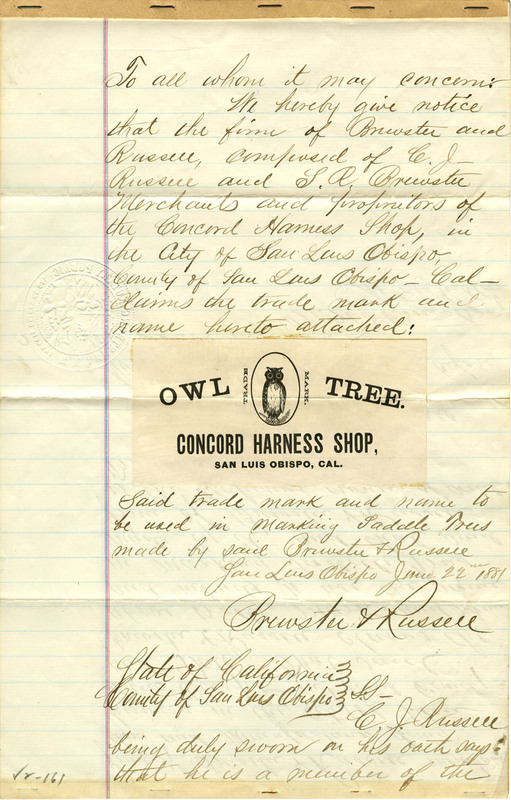 To all whom it may concern:
We hereby give notice
that the firm of Brewster and
Russell, composed of C. J.
Russell and S. A. Brewster
Merchants and proprietors of
the Concord Harness Shop, in
the City of San Luis Obispo,
County of San Luis Obispo - Cal -
Claims the trade mark and
name hereto attached:
OWL TRADE MARK. TREE.
CONCORD HARNESS SHOP,
SAN LUIS OBISPO, CAL.
Said trade mark and name to
be used in marking Saddle Trees
made by said Brewster & Russell
San Luis Obispo June 22nd 1881
Brewster & Russell
State of California
County of San Luis Obispo } SS -
C. J. Russell
being duly sworn on his oath says:
that he is a member of the